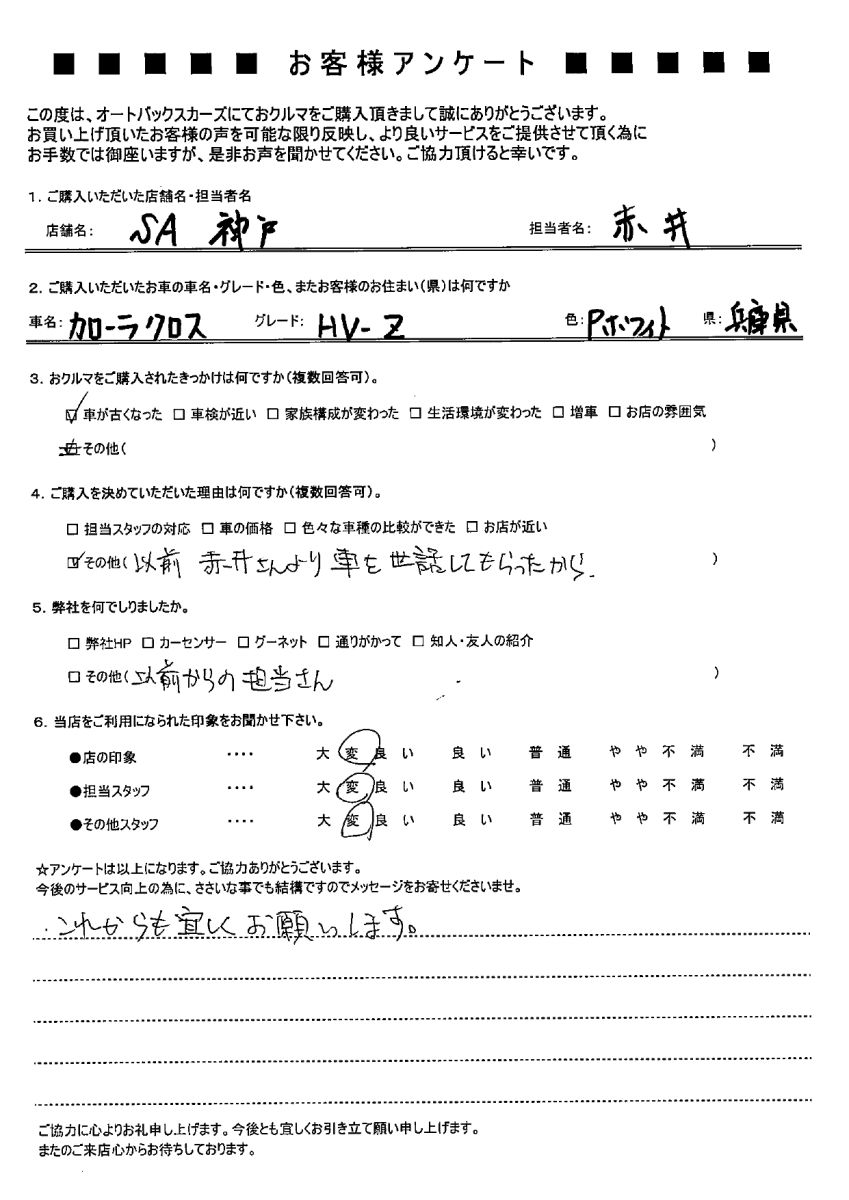 ■ ■ ■ ■ ■ お客様アンケート ■ ■ ■ ■ ■
この度は、オートバックスカーズにておクルマをご購入頂きまして誠にありがとうございます。
お買い上げ頂いたお客様の声を可能な限り反映し、より良いサービスをご提供させて頂く為に
お手数では御座いますが、是非お声を聞かせてください。ご協力頂けると幸いです。
1. ご購入いただいた店舗名・担当者名
店舗名: SA 神戸 担当者名: 赤井
2. ご購入いただいたお車の車名・グレード・色、またお客様のお住まい(県)は何ですか
車名: カローラクロス グレード: HV-Z 色: Pホワイト 県: 兵庫県
3. おクルマをご購入されたきっかけは何ですか(複数回答可)。
☑ 車が古くなった □ 車検が近い □ 家族構成が変わった □ 生活環境が変わった □ 増車 □ お店の雰囲気
□ その他( )
4. ご購入を決めていただいた理由は何ですか(複数回答可)。
□ 担当スタッフの対応 □ 車の価格 □ 色々な車種の比較ができた □ お店が近い
☑ その他( 以前 赤井さんより車を世話してもらったから. )
5. 弊社を何でしりましたか。
□ 弊社HP □ カーセンサー □ グーネット □ 通りがかって □ 知人・友人の紹介
□ その他( 以前からの担当さん )
6. 当店をご利用になられた印象をお聞かせ下さい。
●店の印象 ・・・・ 大変良い 良い 普通 やや不満 不満
●担当スタッフ ・・・・ 大変良い 良い 普通 やや不満 不満
●その他スタッフ ・・・・ 大変良い 良い 普通 やや不満 不満
☆アンケートは以上になります。ご協力ありがとうございます。
今後のサービス向上の為に、ささいな事でも結構ですのでメッセージをお寄せくださいませ。
・これからも宜しくお願いします。
ご協力に心よりお礼申し上げます。今後とも宜しくお引き立て願い申し上げます。
またのご来店心からお待ちしております。